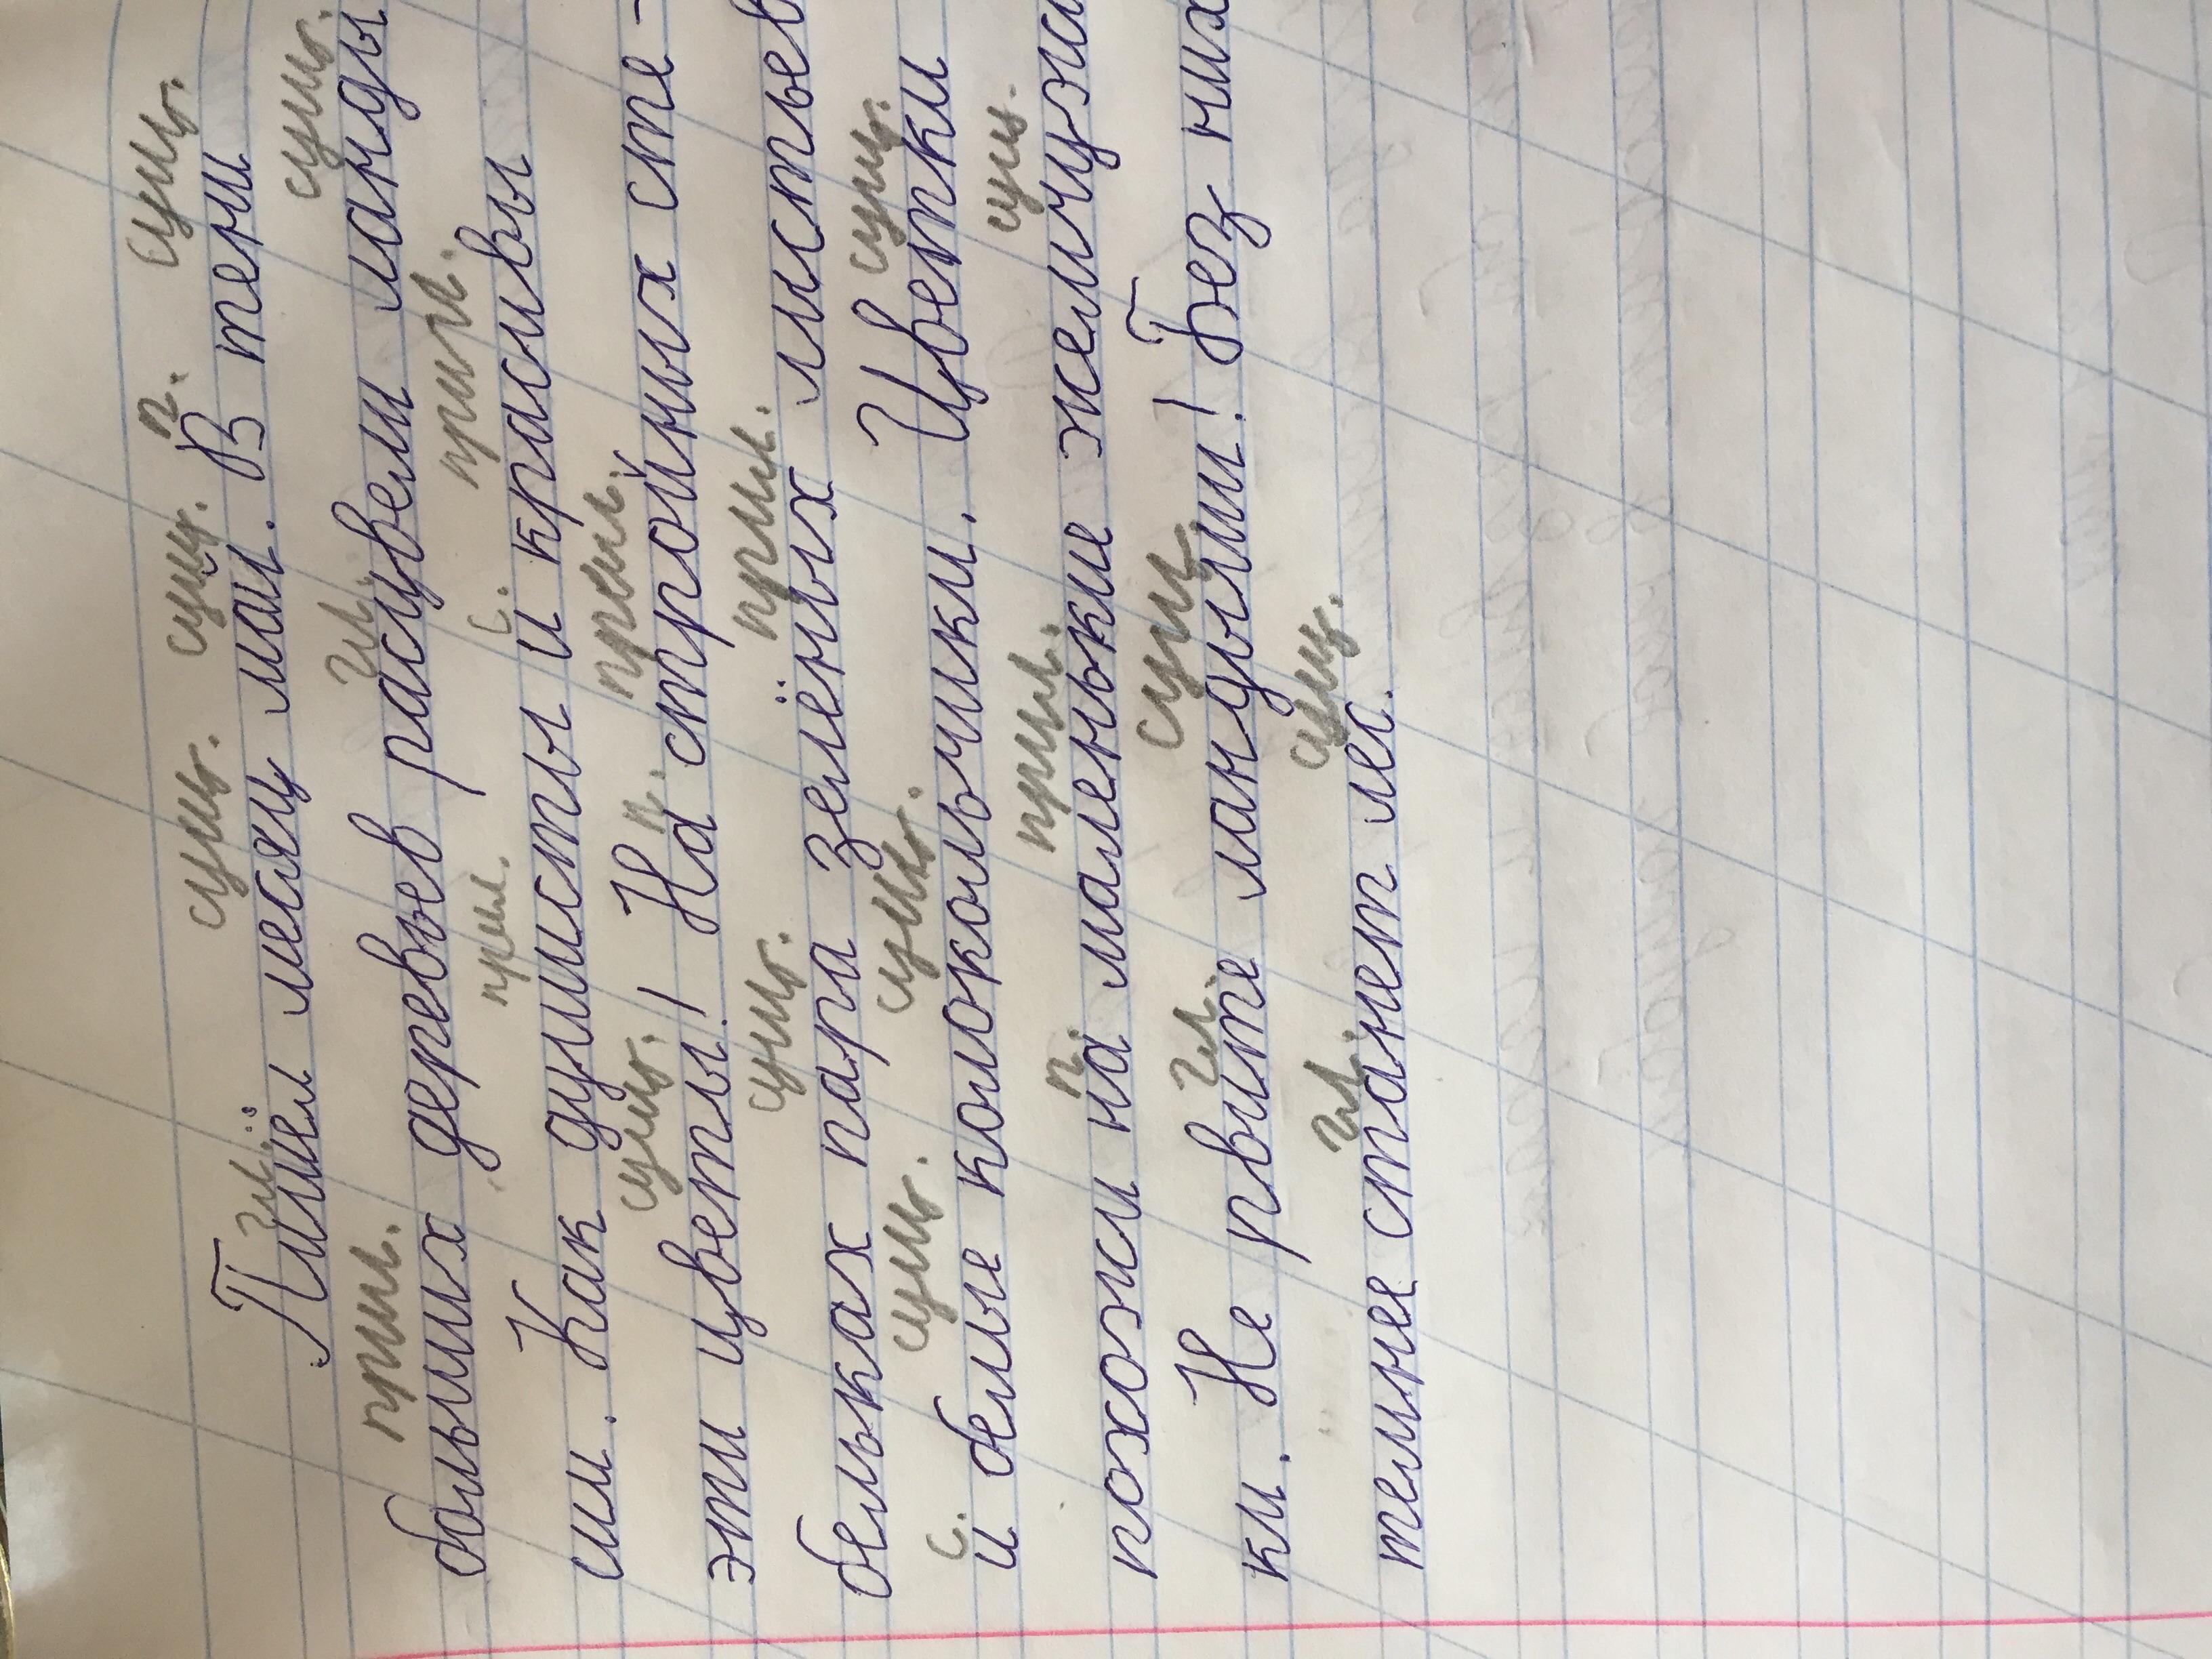 гл. сущ. сущ. п. сущ.
Пшёл месяц май. В тени
прил. гл. сущ.
больших деревьев расцвели ланды
прил. с. прил.
ши. Как душисты и красивы
сущ. п. прил.
эти цветы! На стройных сте-
сущ. прил.
бельках пара зелёных листьев
с. сущ. сущ. сущ.
и белые колокольчики. Цветки
п. прил. сущ.
похожи на маленькие жемчужи
гл. сущ.
ки. Не рвите ландыши! Без них
гл. сущ.
темнее станет лес.